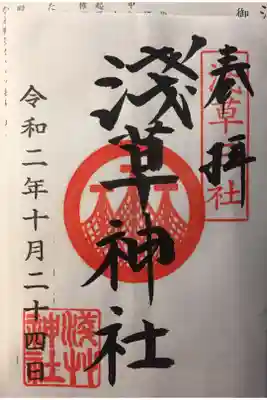 奉拝
淺草社
淺草神社
令和二年十月二十四日
淺草神社